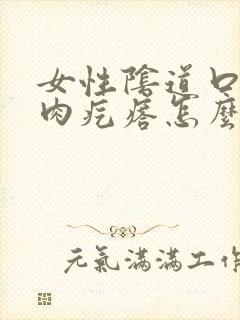 女性陰道口
肉疙瘩怎麼
元氣滿滿工作